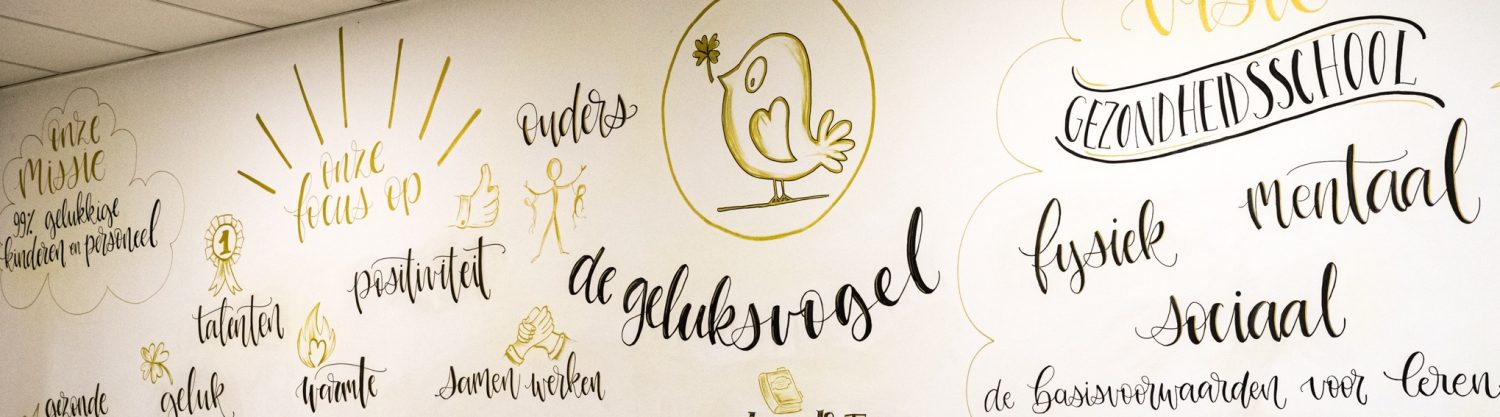 onze
missie
99% gelukkige
kinderen en personeel
onze
focus op
ouders
positiviteit
talenten
1
gezonde
geluk
warmte
samen werken
de geluksvogel
visie
GEZONDHEIDSSCHOOL
fysiek
mentaal
sociaal
de basisvoorwaarden voor leren